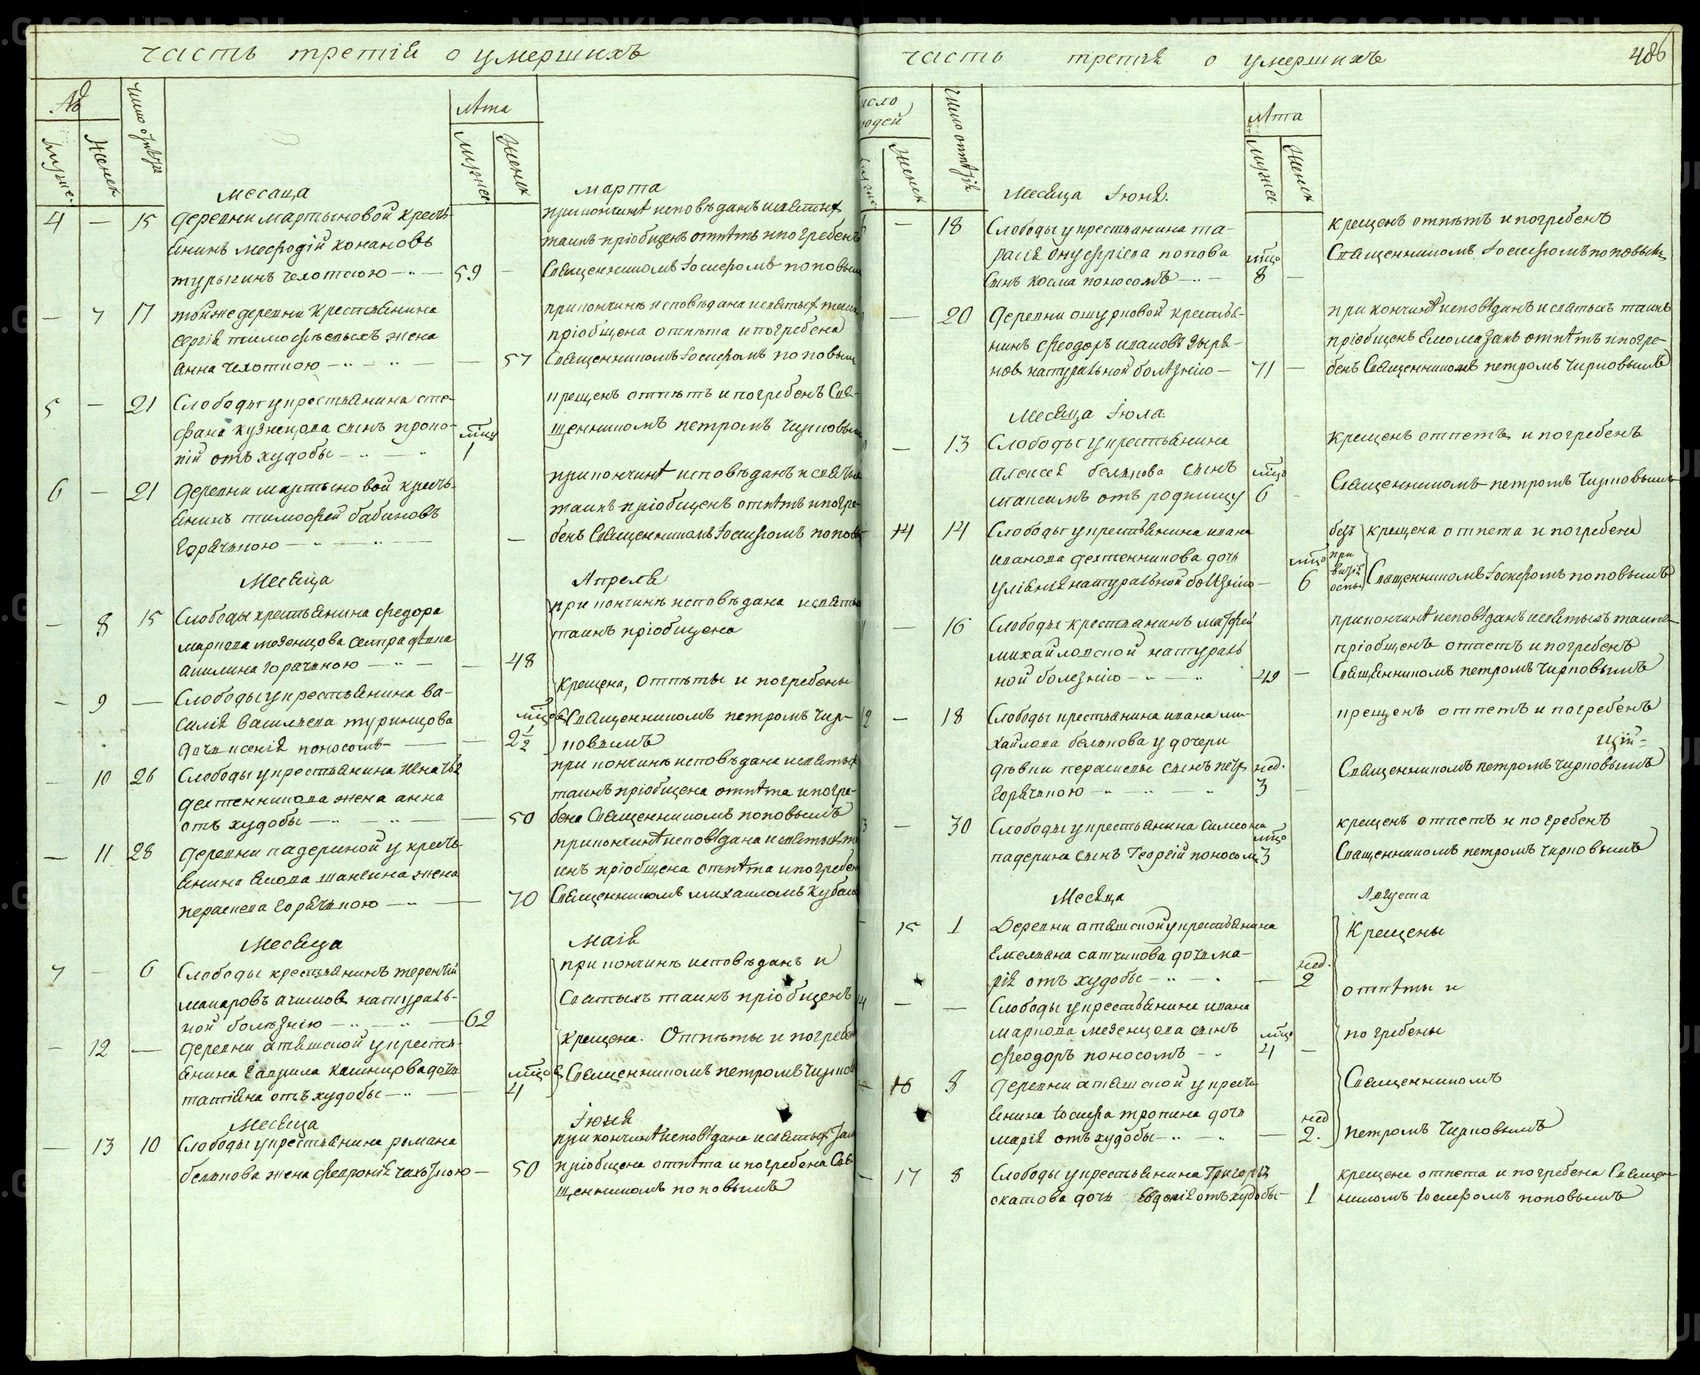 часть третія о умершихъ
№
число
лѣта
мужес.
женск
мужес
женск
месаца
марта
4 — 15 деревни мартыновой кресть-
янинъ мефодій конановъ
турыгинъ чехоткою — 59 —
при кончинѣ исповѣданъ и святых
таинъ пріобщенъ отпѣтъ и погребенъ
Священникомъ Іосифомъ поповым
— 7 17 тойже деревни крестьянина
сергія тимофѣевыхъ жена
анна чехоткою — 57
при кончинѣ исповѣдана и святых таин
пріобщена отпѣта и погребена
Священникомъ Іосифомъ поповым
5 — 21 Слободы у крестьянина сте-
фана кузнецова сынъ проко-
пій отъ худобы мцъ 1
крещенъ отпѣтъ и погребенъ Свя-
щенникомъ петромъ Чирковым
6 — 21 деревни мартыновой кресть-
янинъ тимофей бабиновъ
горячкою —
при кончинѣ исповѣданъ и святых
таинъ пріобщенъ отпѣтъ и погре-
бенъ Священникомъ Іосифомъ попов
Месяца
Апреля
— 8 15 Слободы крестьянина федора
маркова мезенцова сестра дѣвка
акилина горячкою — 48
при кончинѣ исповѣдана и святы
таинъ пріобщена
— 9 — Слободы у крестьянина ва-
силія васильева туринцова
дочь ксенія поносомъ — мцов 2 1/2
крещена, отпѣты и погребены
Священникомъ петромъ Чир-
ковымъ
— 10 26 Слободы у крестьянина игнатья
дехтенникова жена анна
отъ худобы — 50
при кончинѣ исповѣдана и святых
таинъ пріобщена отпѣта и погре-
бена Священникомъ поповымъ
— 11 28 деревни падериной у кресть-
янина жена
параскева горячкою — 70
при кончинѣ исповѣдана и святых та
инъ пріобщена отпѣта и погребен
Священникомъ михаиломъ
Месяца
маія
7 — 6 Слободы крестьянинъ терентій
макаровъ натураль-
ной болѣзнію — 62
при кончинѣ исповѣданъ и
Святыхъ таинъ пріобщенъ
— 12 — деревни аташской у кресть-
янина гаврила дочь
татіяна отъ худобы — мцов 4
крещена. Отпѣты и погребен
Священникомъ петромъ Чирков
Месяца
Іюня
— 13 10 Слободы у крестьянина романа
белькова жена февронія чахоткою — 50
при кончинѣ исповѣдана и святых таи
пріобщена отпѣта и погребена Свя-
щенникомъ поповымъ
часть третія о умершихъ
486
число
людей
женск
лѣта
мужес
женск
месяца Іюня.
— 18 Слободы у крестьянина та-
расія онуфріева попова
сынъ косма поносомъ — мцо 8 —
крещенъ отпѣтъ и погребенъ
Священникомъ Іосифомъ поповым
— 20 деревни ошурковой крестья-
нинъ феодоръ ивановъ зыря-
новъ натуральной болѣзнію — 71 —
при кончинѣ исповѣданъ и святыхъ таинъ
пріобщенъ елеомазанъ отпѣтъ и погре-
бенъ Священникомъ петромъ Чирковымъ
Месяца Іюла
— 13 Слободы у крестьянина
алексея белькова сынъ
максимъ отъ родимцу мцо 6 —
крещенъ отпетъ и погребенъ
Священникомъ петромъ Чирковымъ
14 14 Слободы у крестьянина ивана
иванова дехтенникова дочь
уліянія натуральной болѣзнію — мцо 6
крещена отпета и погребена
Священникомъ Іосифомъ поповымъ
— 16 Слободы крестьянинъ матфей
михайловской натураль
ной болезнію — 49 —
при кончинѣ исповѣданъ и святыхъ таинъ
пріобщенъ отпетъ и погребенъ
Священникомъ петромъ Чирковымъ
12 — 18 Слободы крестьянина ивана ми-
хайлова белькова у дочери
дѣвки параскевы сынъ петр
горячкою — нед. 3 —
крещенъ отпетъ и погребенъ
Священникомъ петромъ Чирковымъ
13 — 30 Слободы у крестьянина симеона
падерина сынъ Георгій поносомъ мцо 3
крещенъ отпетъ и погребенъ
Священникомъ петромъ Чирковымъ
Месяца
Августа
15 1 Деревни аташской у крестьянина
емельяна дочь ма-
рія отъ худобы — нед. 2
Крещены
14 — — Слободы у крестьянина ивана
маркова мезенцова сынъ
феодоръ поносомъ — мцо 4 —
отпѣты и
погребены
— 16 8 деревни аташской у кресть
янина Іосифа тропина дочь
марія отъ худобы — нед 2.
Священникомъ
петромъ Чирковымъ
— 17 8 Слободы у крестьянина Григорья
скатова дочь Евдокія отъ худобы — 1
крещена отпета и погребена Священ-
никомъ Іосифомъ поповымъ